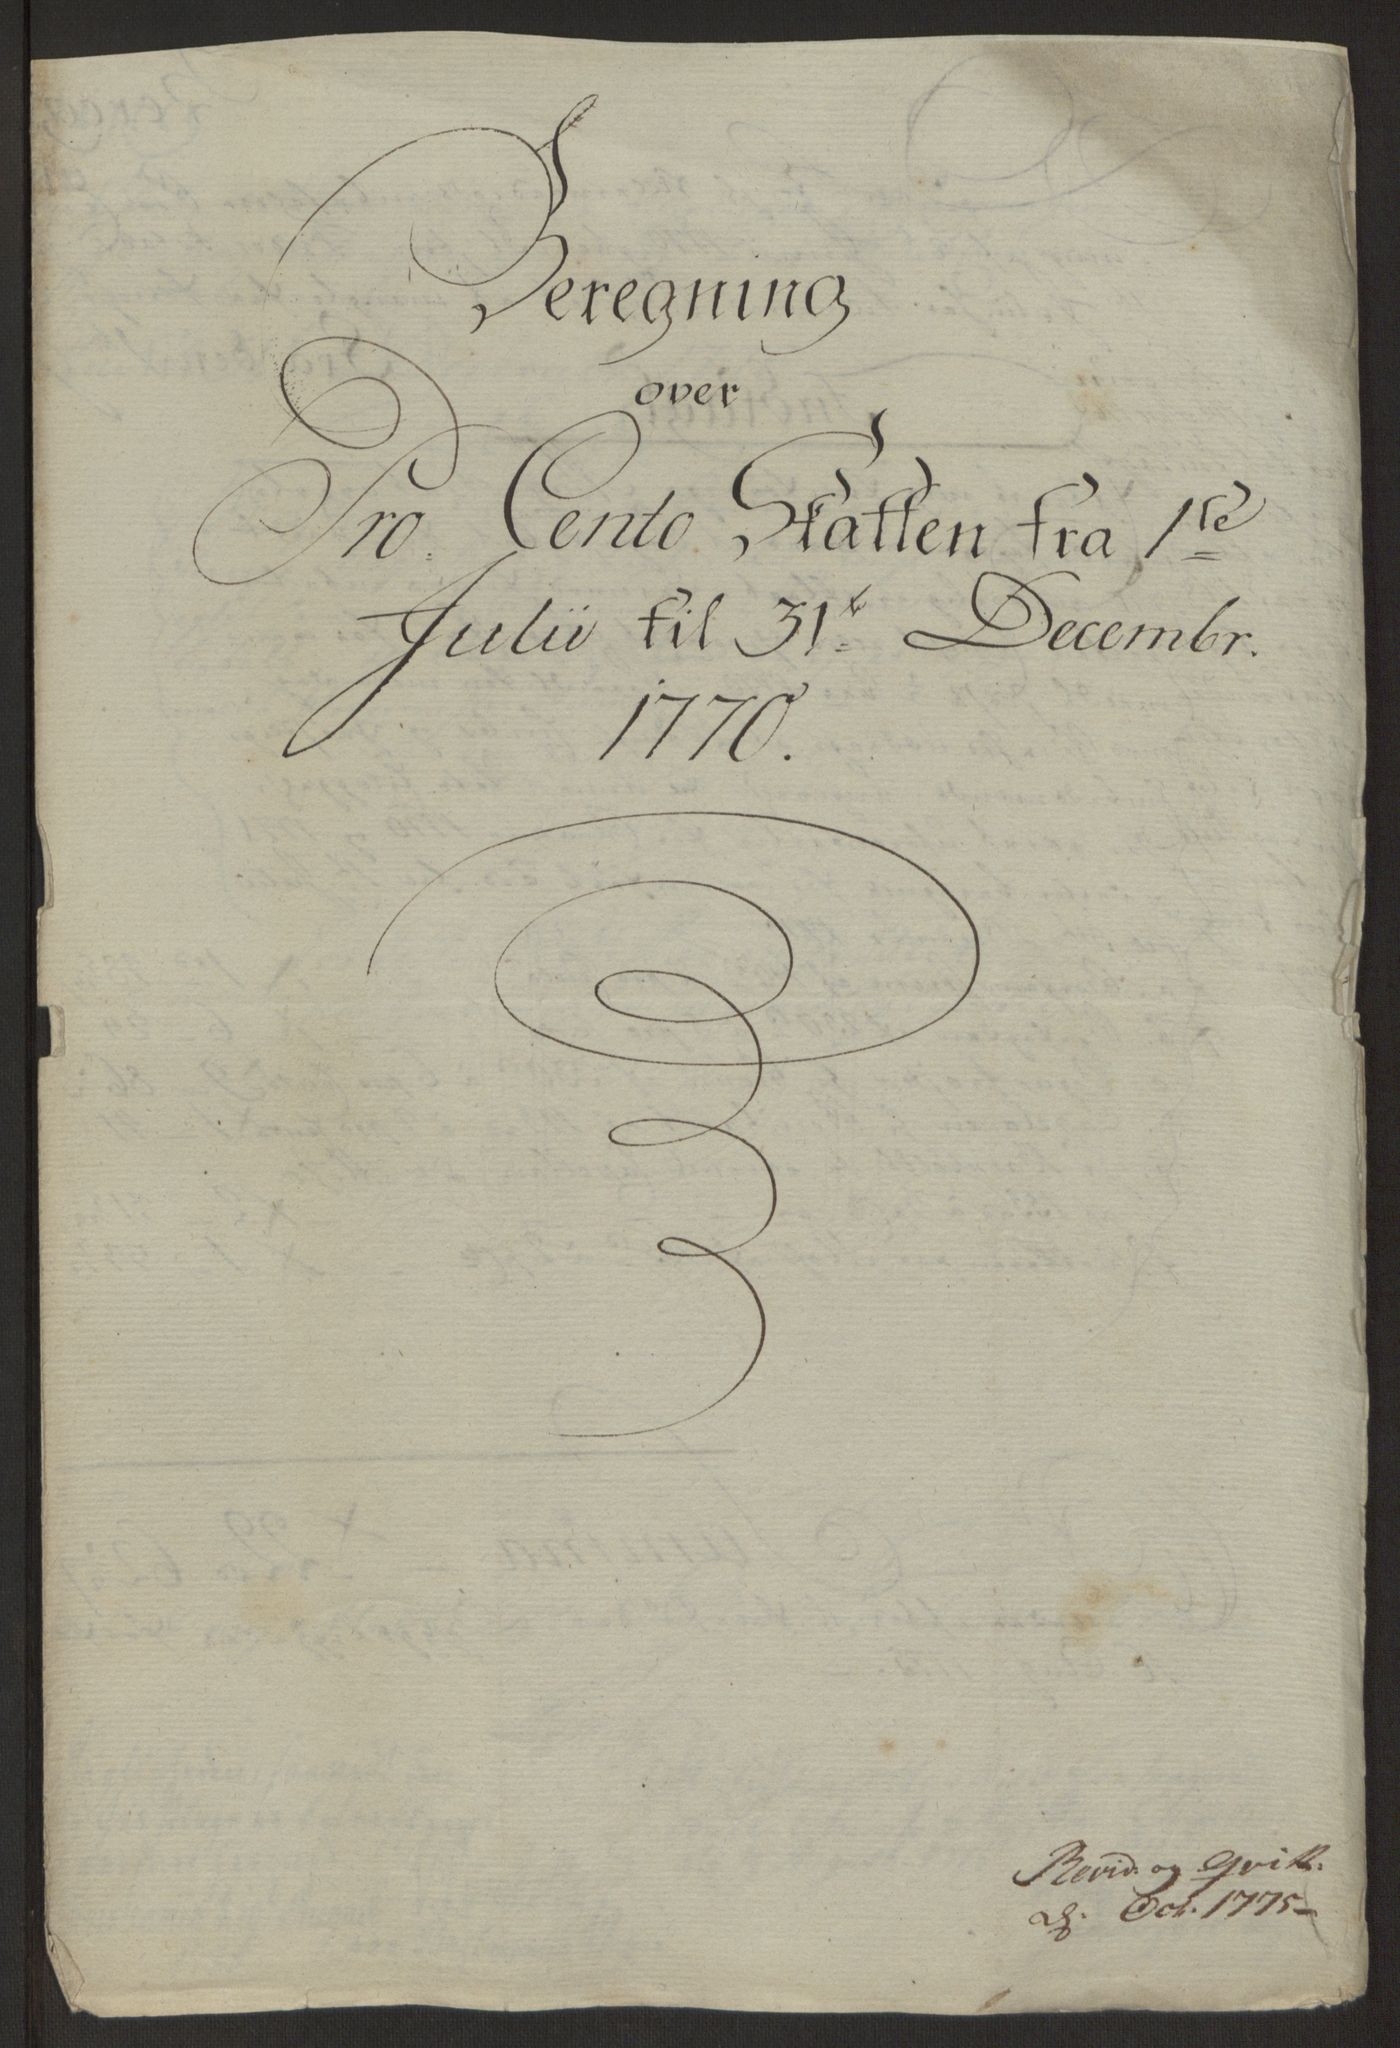 Beregning
over
Pro Cento Skatten fra 1ste
Julii til 31te Decembr.
1770.
Revid. og Qvitt.
Oct. 1775